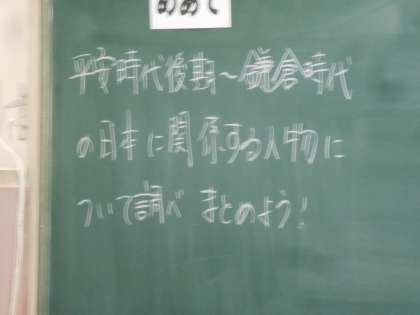 めあて
平安時代後期～鎌倉時代
の日本に関係する人物に
ついて調べ まとめよう!